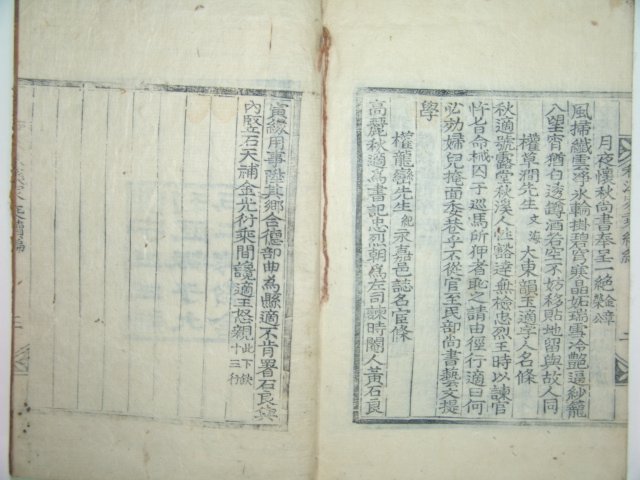 月夜懷秋尚書奉呈一絶 金章 槃公
風掃纖雲淨 氷輪掛碧穹 寒晶妬瑞雪 冷艶逼紗籠
八望宵猶白 透罇酒若空 不妨移貼地 留與故人同
權草澗先生 文海 大東韻玉適字人名條
秋適號露堂秋溪人性豁達無檢忠烈王時以諫官
忤旨命械囚子巡馬所押者耻之請由徑行適曰何
必効婦兒掩面委巷乎不從官至民部尚書藝文提
學
權龍巒先生 紀 永嘉邑誌名宦條
高麗秋適爲書記忠烈朝爲左司諫時閹人黃石良
寅緣用事陞其鄉合德部曲爲縣適不肯署石良與
內竪石天補金光衍乘間讒適王怒親 此下缺 十三行